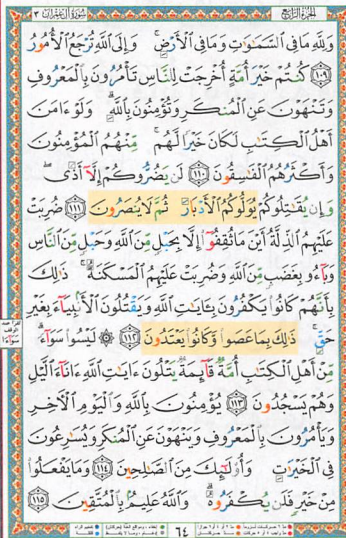 الجزء الرابع سورة آل عمران ٣
وَلِلَّهِ مَا فِي السَّمَٰوَٰتِ وَمَا فِي الْأَرْضِ ۚ وَإِلَى اللَّهِ تُرْجَعُ الْأُمُورُ
﴿١٠٩﴾ كُنتُمْ خَيْرَ أُمَّةٍ أُخْرِجَتْ لِلنَّاسِ تَأْمُرُونَ بِالْمَعْرُوفِ
وَتَنْهَوْنَ عَنِ الْمُنكَرِ وَتُؤْمِنُونَ بِاللَّهِ ۗ وَلَوْ ءَامَنَ
أَهْلُ الْكِتَٰبِ لَكَانَ خَيْرًا لَّهُم ۚ مِّنْهُمُ الْمُؤْمِنُونَ
وَأَكْثَرُهُمُ الْفَٰسِقُونَ ﴿١١٠﴾ لَن يَضُرُّوكُمْ إِلَّا أَذًى ۖ
وَإِن يُقَٰتِلُوكُمْ يُوَلُّوكُمُ الْأَدْبَارَ ثُمَّ لَا يُنصَرُونَ ﴿١١١﴾ ضُرِبَتْ
عَلَيْهِمُ الذِّلَّةُ أَيْنَ مَا ثُقِفُوا إِلَّا بِحَبْلٍ مِّنَ اللَّهِ وَحَبْلٍ مِّنَ النَّاسِ
وَبَاءُو بِغَضَبٍ مِّنَ اللَّهِ وَضُرِبَتْ عَلَيْهِمُ الْمَسْكَنَةُ ۚ ذَٰلِكَ
بِأَنَّهُمْ كَانُوا يَكْفُرُونَ بِـَٔايَٰتِ اللَّهِ وَيَقْتُلُونَ الْأَنۢبِيَاءَ بِغَيْرِ
حَقٍّ ۚ ذَٰلِكَ بِمَا عَصَوا وَّكَانُوا يَعْتَدُونَ ﴿١١٢﴾ ۞ لَيْسُوا سَوَاءً ۗ
مِّنْ أَهْلِ الْكِتَٰبِ أُمَّةٌ قَائِمَةٌ يَتْلُونَ ءَايَٰتِ اللَّهِ ءَانَاءَ الَّيْلِ
وَهُمْ يَسْجُدُونَ ﴿١١٣﴾ يُؤْمِنُونَ بِاللَّهِ وَالْيَوْمِ الْءَاخِرِ
وَيَأْمُرُونَ بِالْمَعْرُوفِ وَيَنْهَوْنَ عَنِ الْمُنكَرِ وَيُسَٰرِعُونَ
فِي الْخَيْرَٰتِ وَأُولَٰئِكَ مِنَ الصَّٰلِحِينَ ﴿١١٤﴾ وَمَا يَفْعَلُوا
مِنْ خَيْرٍ فَلَن يُكْفَرُوهُ ۗ وَاللَّهُ عَلِيمٌۢ بِالْمُتَّقِينَ ﴿١١٥﴾
٦٤